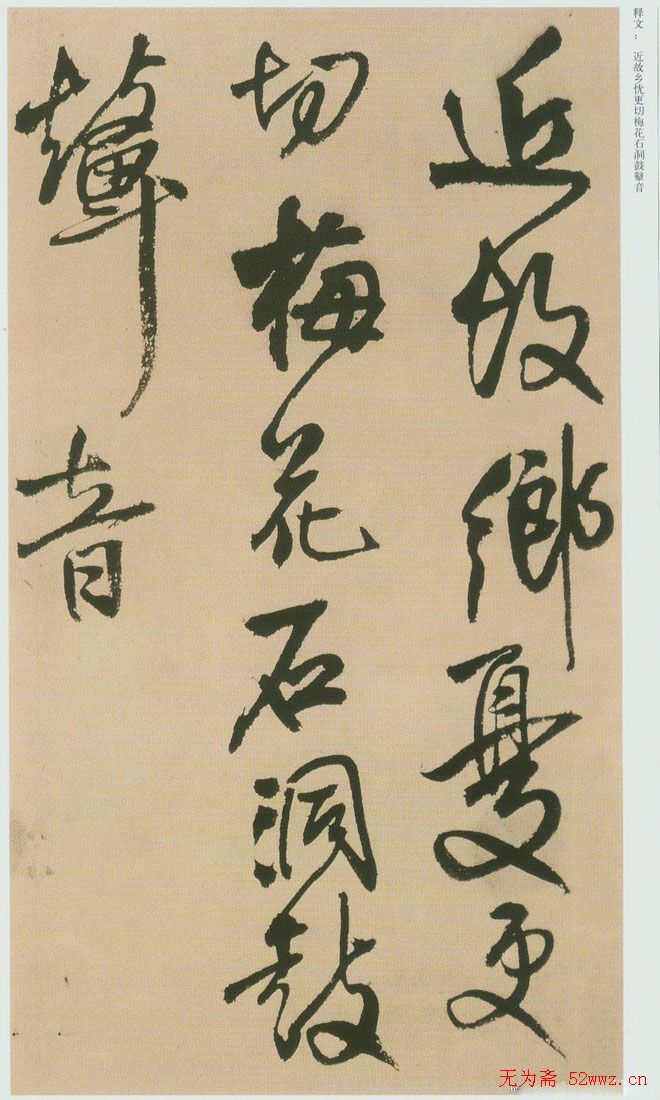 释文：　近故乡忧更切梅花石洞鼓鼙音
近故鄉憂更
切梅花石洞鼓
鼙音
无为斋 52wwz.cn